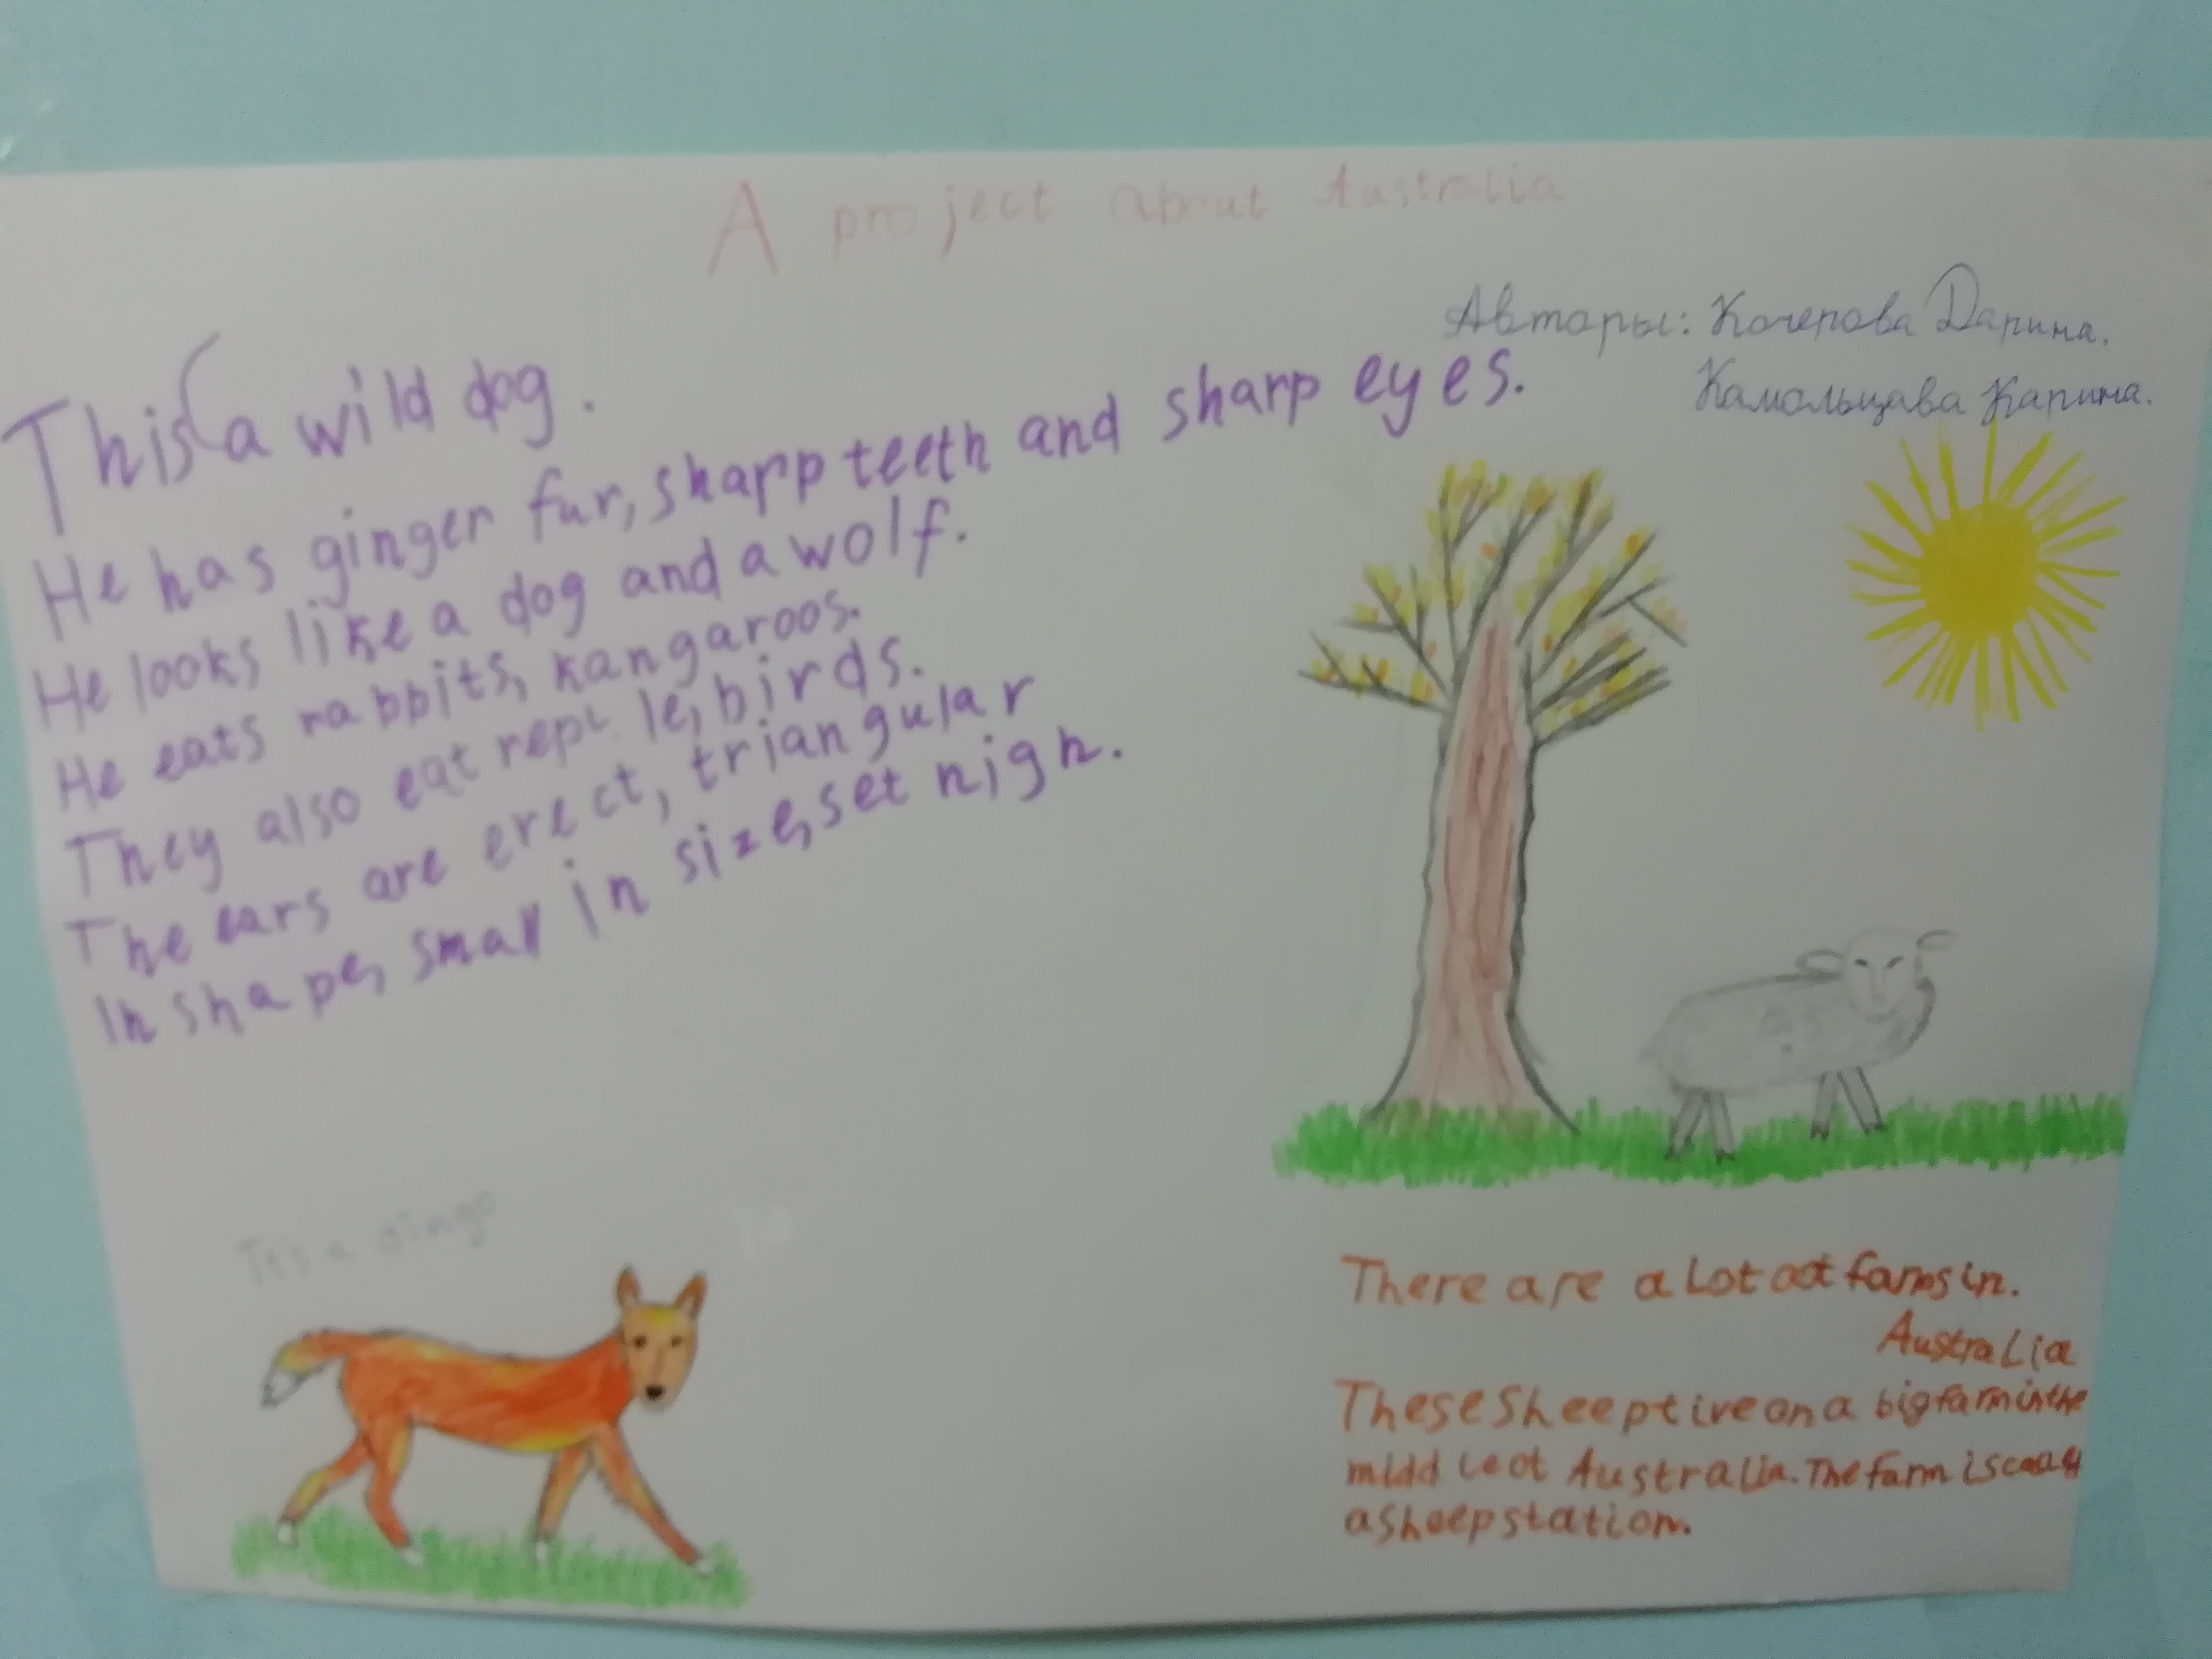 A project about Australia
Авторы: Кочерова Дарина.
Камальцава Карина.
This a wild dog.
He has ginger fur, sharp teeth and sharp eyes.
He looks like a dog and a wolf.
He eats rabbits, kangaroos.
They also eat reptile, birds.
The ears are erect, triangular
In shape, small in size, set nigh.
It's a dingo
There are a Lot oot farms in.
Australia
These Sheep tive on a big farm in the
middle ot Australia. The farm is
a sheep station.